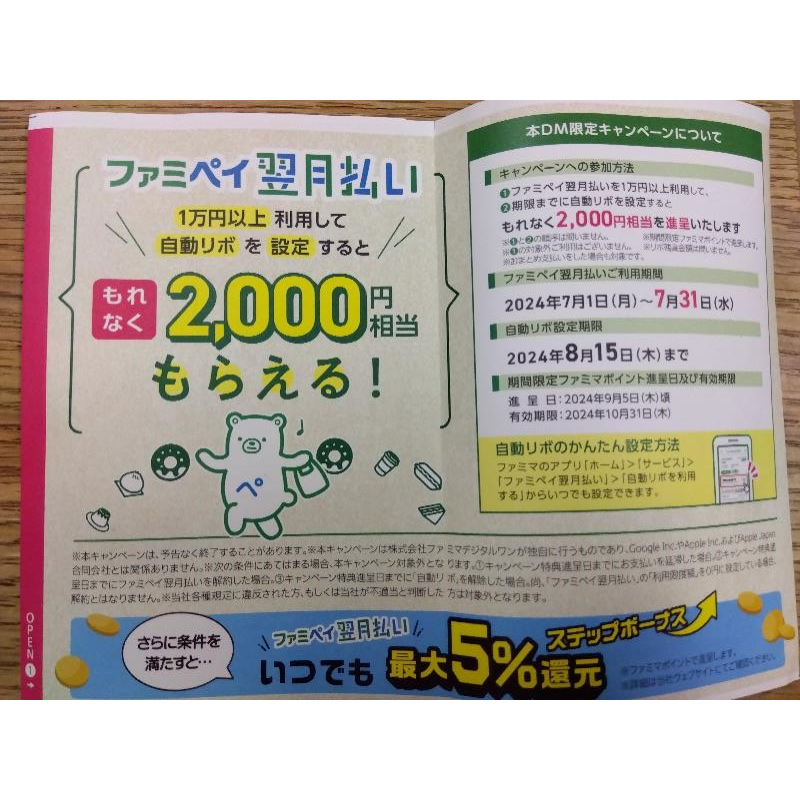 ファミペイ 翌月払い
1万円以上 利用して
自動リボ を 設定 すると
もれなく
2,000円相当
もらえる!
ペ
本DM限定キャンペーンについて
キャンペーンへの参加方法
❶ファミペイ翌月払いを1万円以上利用して、
❷期限までに自動リボを設定すると
もれなく2,000円相当を進呈いたします
※❶と❷の順序は問いません。 ※期間限定ファミマポイントで進呈します。
※❶の対象外ご利用はございません。 ※リボ残高金額は問いません。
※おまとめ支払いをした場合も対象です。
ファミペイ翌月払いご利用期間
2024年7月1日(月)～7月31日(水)
自動リボ設定期限
2024年8月15日(木)まで
期間限定ファミマポイント進呈日及び有効期限
進 呈 日:2024年9月5日(木)頃
有効期限:2024年10月31日(木)
自動リボのかんたん設定方法
ファミマのアプリ「ホーム」>「サービス」>
「ファミペイ翌月払い」>「自動リボを利用
する」からいつでも設定できます。
※本キャンペーンは、予告なく終了することがあります。※本キャンペーンは株式会社ファミマデジタルワンが独自に行うものであり、Google Inc.やApple Inc.およびApple Japan
合同会社とは関係ありません。※次の条件にあてはまる場合、本キャンペーン対象外となります。①キャンペーン特典進呈日までにお支払いを延滞した場合。②キャンペーン特典進
呈日までにファミペイ翌月払いを解約した場合。③キャンペーン特典進呈日までに「自動リボ」を解除した場合。尚、「ファミペイ翌月払い」の「利用限度額」を0円に設定している場合、
解約とはなりません。※当社各種規定に違反された方、もしくは当社が不適当と判断した方は対象外となります。
OPEN❶→
さらに条件を
満たすと…
ファミペイ 翌月払い
いつでも 最大5%還元
ステップボーナス
※ファミマポイントで進呈します。
※詳細は当社ウェブサイトにてご確認ください。